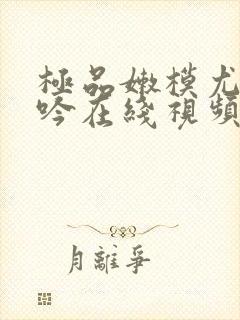 極品嫩模尤
吟在綫視頻
月離爭